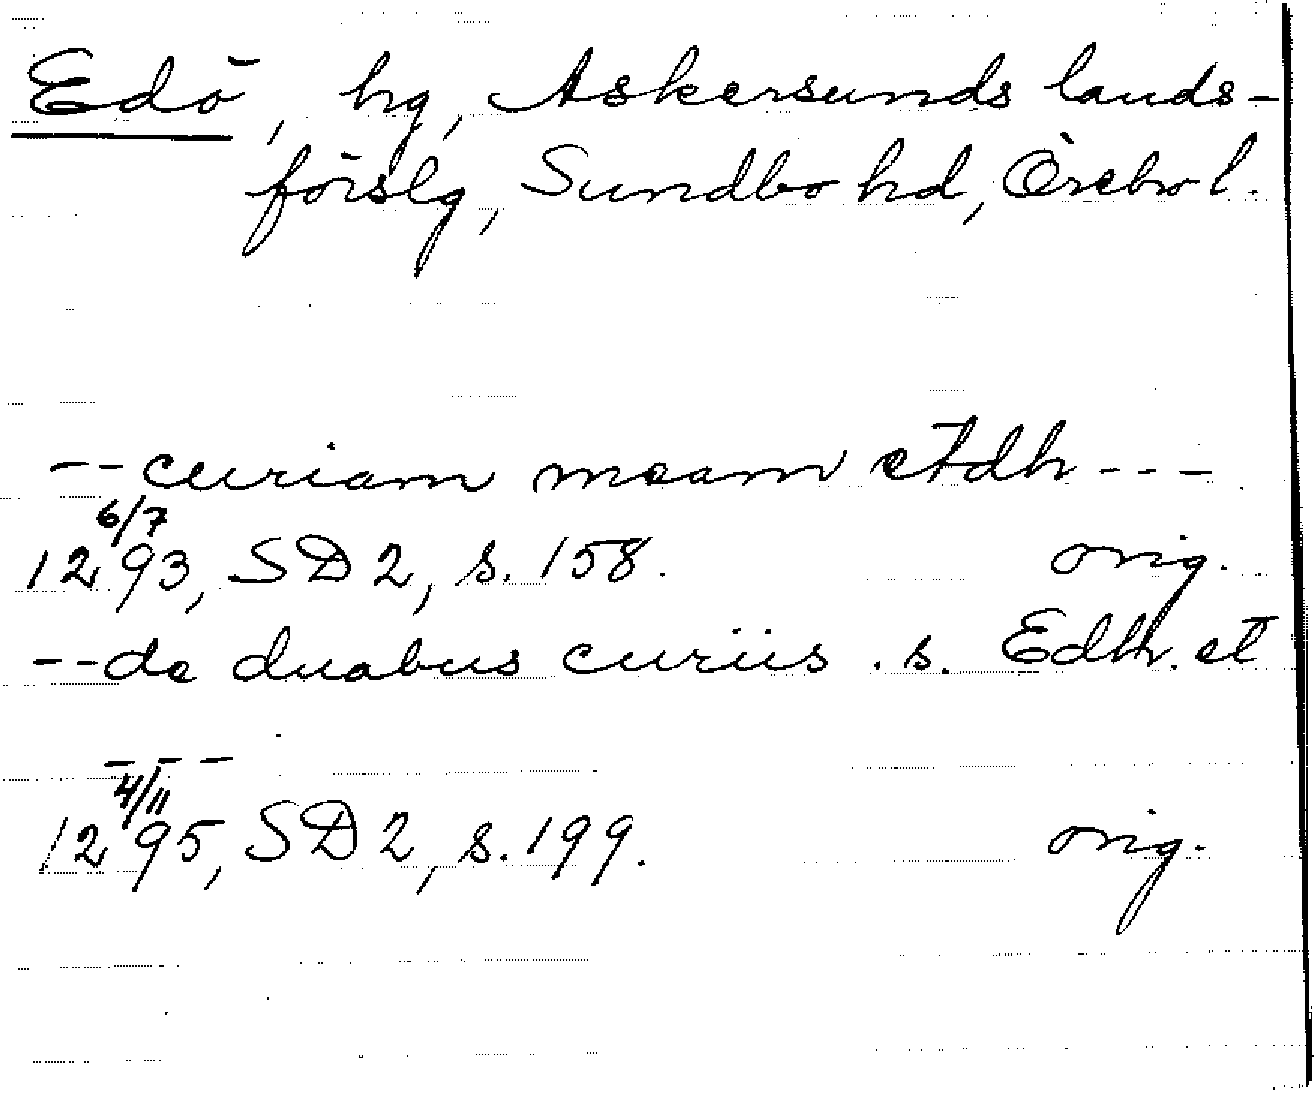 Edö, hg, Askersunds lands-
förslg, Sundbo hd, Örebro l.
--curiam meam
6/7
1293, SD 2, s. 158. orig.
--de duabus curiis . s. Edhr. et
---
4/11
1295, SD 2, s. 199. orig.